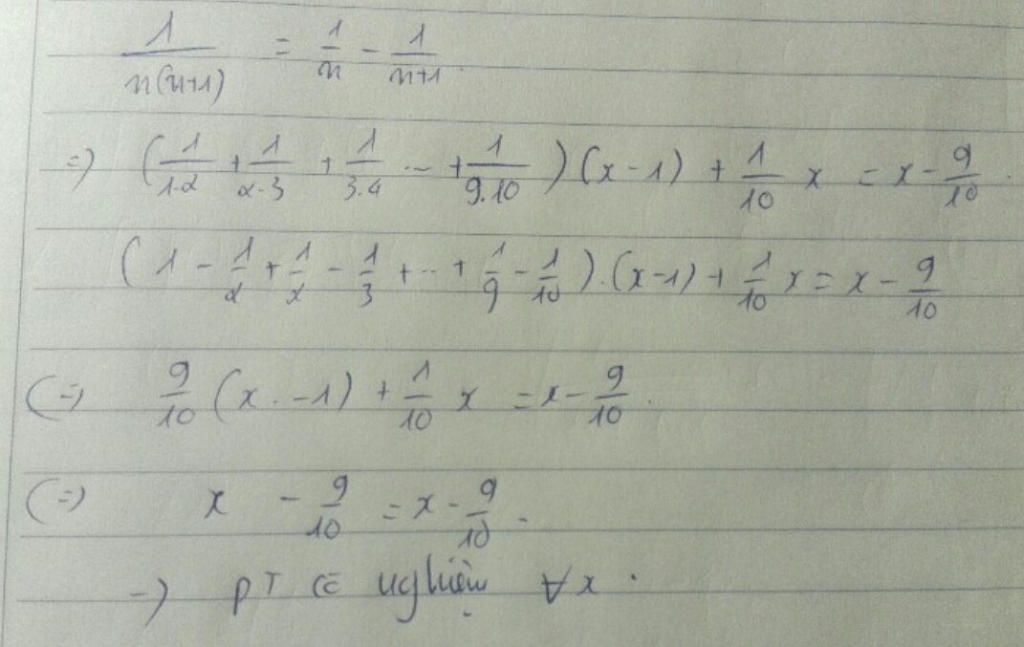 1/n(n+1) = 1/n - 1/n+1.
=) (1/1.2 + 1/2.3 + 1/3.4 ... + 1/9.10) (x - 1) + 1/10 x = x - 9/10.
(1 - 1/2 + 1/2 - 1/3 + ... + 1/9 - 1/10).(x-1) + 1/10 x = x - 9/10
(=) 9/10 (x - 1) + 1/10 x = x - 9/10.
(=) x - 9/10 = x - 9/10.
-) PT có nghiệm ∀x.